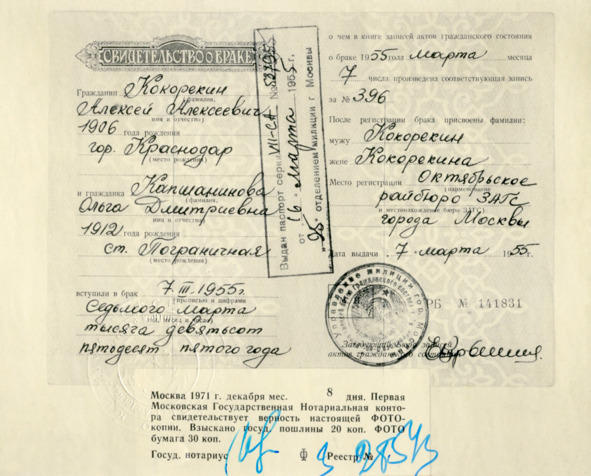 СВИДЕТЕЛЬСТВО О БРАКЕ
Гражданин Кокорекин
(фамилия,
Алексей Алексеевич
имя и отчество)
1906 года рождения
гор. Краснодар
(место рождения)
и гражданка Капшанинова
(фамилия,
Ольга Дмитриевна
имя и отчество)
1912 года рождения
ст. Пограничная
(место рождения)
вступили в брак 7 III 1955 г.
(прописью и цифрами
Седьмого Марта
тысяча девятьсот
пятьдесят пятого года
Выдан паспорт серии VII-СА №
от „16" Марта 1955 г.
отделением милиции г Москвы
о чем в книге записей актов гражданского состояния
о браке 1955 года марта месяца
7 числа произведена соответствующая запись
за № 396
После регистрации брака присвоены фамилии:
мужу Кокорекин
жене Кокорекина
Место регистрации Октябрьское
(наименование
райбюро ЗАГС
и местонахождение бюро ЗАГС)
города Москвы
Дата выдачи „7" марта 1955 г.
РБ № 141831
Заведующий бюро записей
актов гражданского состояния
Москва 1971 г. декабря мес. 8 дня. Первая
Московская Государственная Нотариальная конто-
ра свидетельствует верность настоящей ФОТО-
копии. Взыскано госуд. пошлины 20 коп. ФОТО
бумага 30 коп.
Госуд. нотариус Ф Реестр №